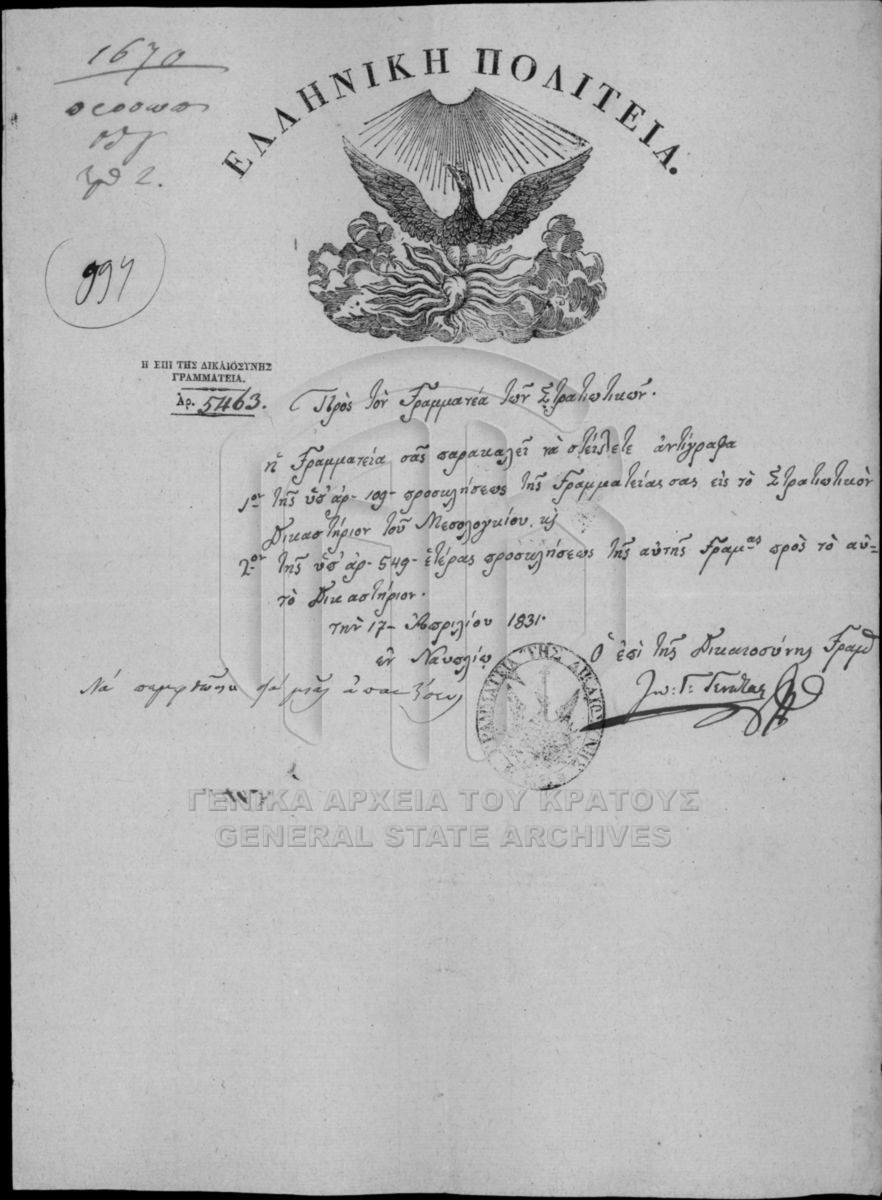 1670
ΕΛΛΗΝΙΚΗ ΠΟΛΙΤΕΙΑ.
994
Η ΕΠΙ ΤΗΣ ΔΙΚΑΙΟΣΥΝΗΣ
ΓΡΑΜΜΑΤΕΙΑ.
Ἀρ. 5463.
Πρὸς τὸν Γραμματέα τῶν Στρατιωτικῶν.
ἡ Γραμματεία σᾶς παρακαλεῖ νὰ στείλετε ἀντίγραφα
1ον τῆς ὑπ' ἀρ. 109 προσκλήσεως τῆς Γραμματείας σας εἰς τὸ Στρατιωτικὸν
Δικαστήριον τοῦ Μεσολογκίου, κ̀
2ον τῆς ὑπ' ἀρ. 549 ἑτέρας προσκλήσεως τῆς αὐτῆς Γραμ.ας πρὸς τὸ αὐ-
τὸ Δικαστήριον.
τὴν 17 Ἀπριλίου 1831.
ἐν Ναυπλίῳ
Ὁ ἐπὶ τῆς Δικαιοσύνης Γραμ.
Ἰω: Γ: Γενατᾶς
Νὰ
ΓΡΑΜΜΑΤΕΙΑ ΤΗΣ ΔΙΚΑΙΟΣΥΝΗΣ
ΓΕΝΙΚΑ ΑΡΧΕΙΑ ΤΟΥ ΚΡΑΤΟΥΣ
GENERAL STATE ARCHIVES